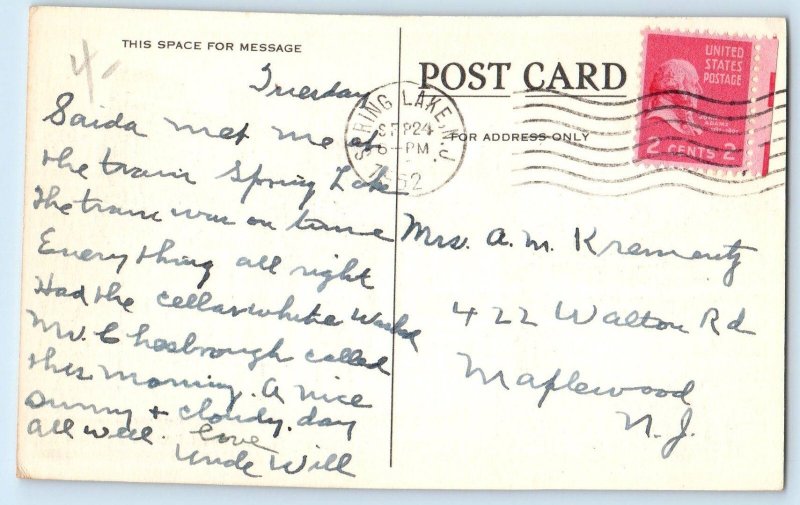 THIS SPACE FOR MESSAGE
4
Tuesday
Saida met me at
the train Spring Lake
the train was on time
Everything all right
Had the cellar white washed
Mr. Chosbrough called
this morning. A nice
sunny + cloudy. day
all well. love
Uncle Will
POST CARD
FOR ADDRESS ONLY
SPRING LAKE, N.J.
SEP 24
6-PM
1952
UNITED
STATES
POSTAGE
ADAMS
2 CENTS 2
Mrs. A. M. Krementz
422 Walton Rd
Maplewood
N. J.